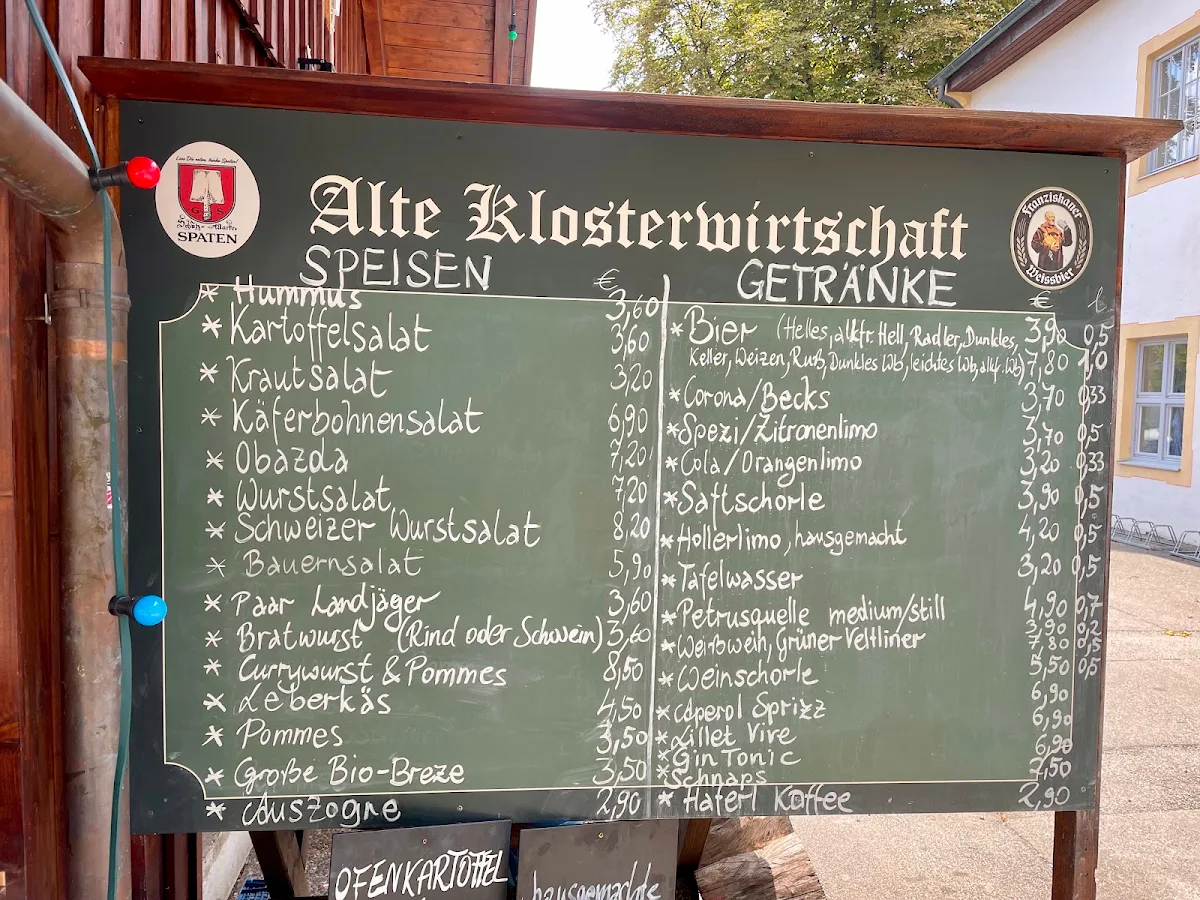 Lass Dir raten, trinke Spaten!
G S
SPATEN
Alte Klosterwirtschaft
Franziskaner
Weissbier
SPEISEN €
* Hummus 3,60
* Kartoffelsalat 3,60
* Krautsalat 3,20
* Käferbohnensalat 6,90
* Obazda 7,20
* Wurstsalat 7,20
* Schweizer Wurstsalat 8,20
* Bauernsalat 5,90
* Paar Landjäger 3,60
* Bratwurst (Rind oder Schwein) 3,60
* Currywurst & Pommes 8,50
* Leberkäs 4,50
* Pommes 3,50
* Große Bio-Breze 3,50
* Auszogne 2,90
GETRÄNKE € l
* Bier (Helles, alkfr. Hell, Radler, Dunkles, 3,90 0,5
Keller, Weizen, Ruß, Dunkles Wb, leichtes Wb, alkf. Wb) 7,80 1,0
* Corona/Becks 3,70 0,33
* Spezi/Zitronenlimo 3,70 0,5
* Cola/Orangenlimo 3,20 0,33
* Saftschorle 3,90 0,5
* Hollerlimo, hausgemacht 4,20 0,5
* Tafelwasser 3,20 0,5
* Petrusquelle medium/still 4,90 0,7
* Weißwein, Grüner Veltliner 3,90 0,2
7,80 0,5
* Weinschorle 5,50 0,5
* Aperol Sprizz 6,90
* Lillet Vive 6,90
* Gin Tonic 6,90
* Schnaps 2,50
* Haferl Kaffee 2,90
OFENKARTOFFEL
hausgemachte